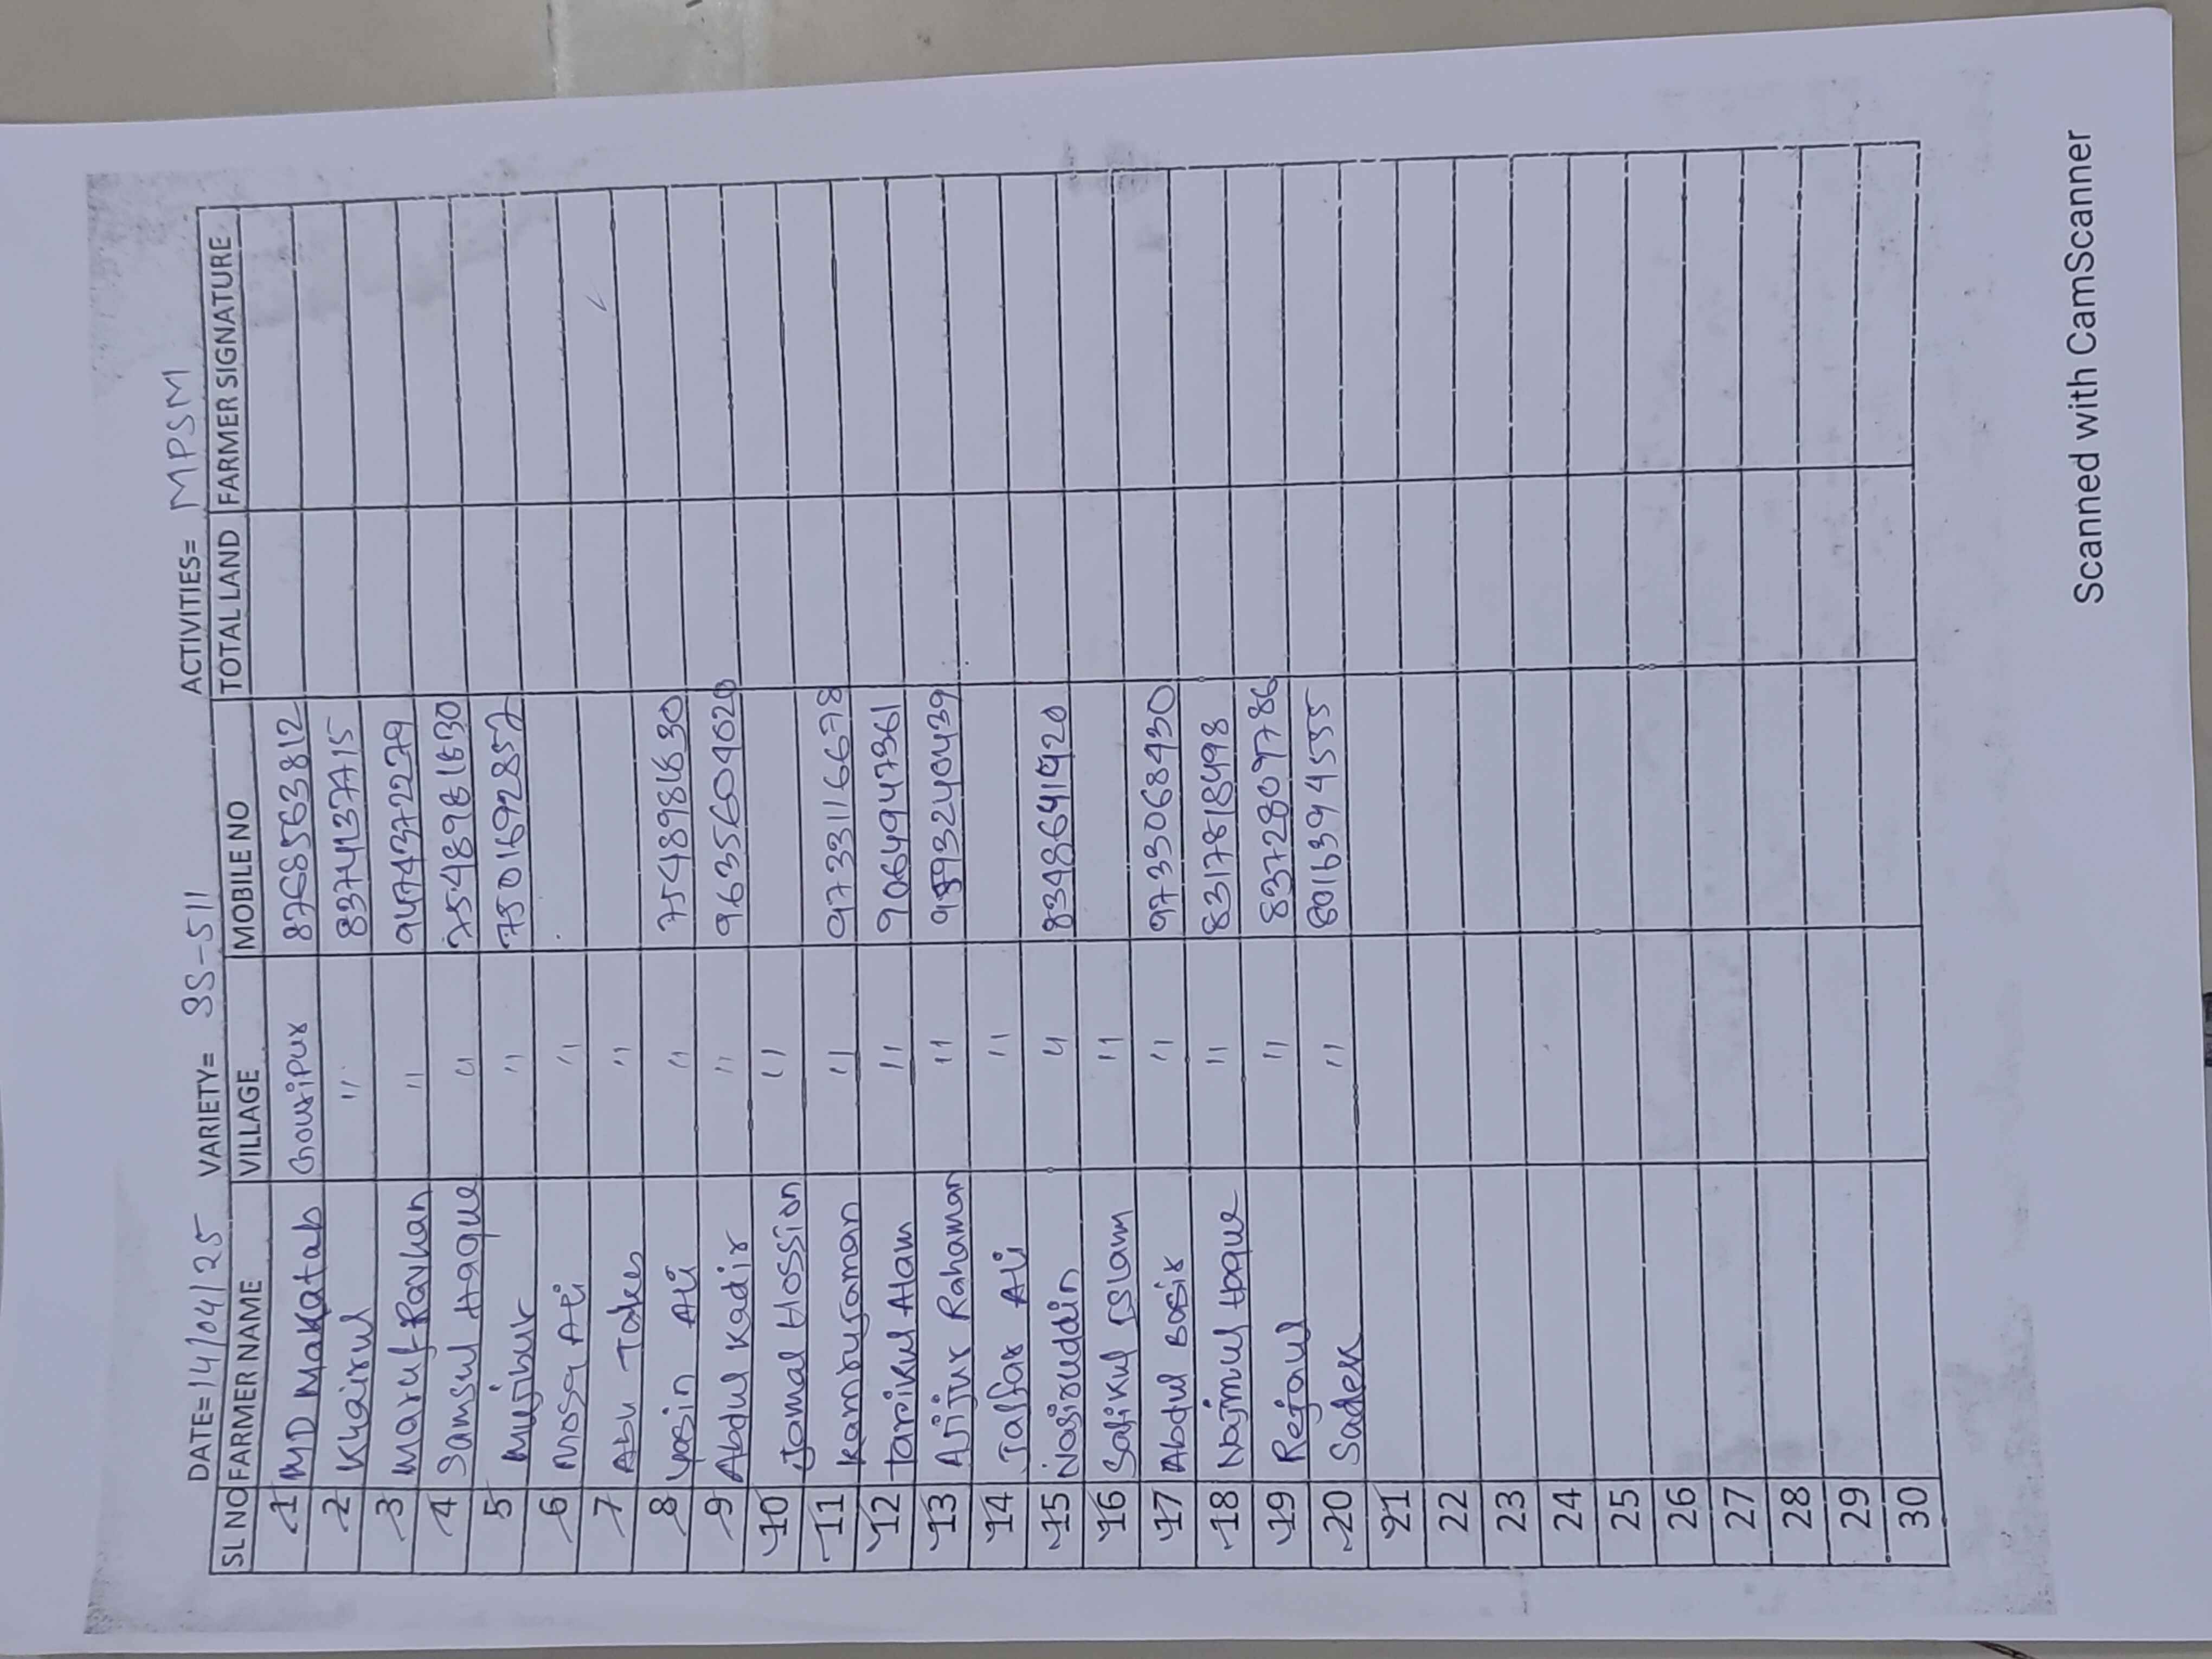 DATE= 14/04/25 VARIETY= SS-511 ACTIVITIES= MPSM
SL NO FARMER NAME VILLAGE MOBILE NO TOTAL LAND FARMER SIGNATURE
1 MD Makatab Gouripur 8768563812
2 Khairul " 8374137715
3 Maruf Rayhan " 9474372279
4 Samsul Haque " 7548981630
5 Mujibur " 7501692857
6 Mosa Ali "
7 Abu Taher "
8 Yasin Ali " 7548981630
9 Abdul Kadir " 9635604020
10 Jamal Hossion "
11 Kamrujaman " 9733116678
12 Tarikul Alam " 9064947361
13 Ajijur Rahaman " 9593240439
14 Jaffar Ali "
15 Nasiruddin " 8348641420
16 Safikul Islam "
17 Abdul Basir " 9733068430
18 Najmul Hoque " 8317818498
19 Rejaul " 8372809786
20 Sadek " 8016394555
21
22
23
24
25
26
27
28
29
30
Scanned with CamScanner